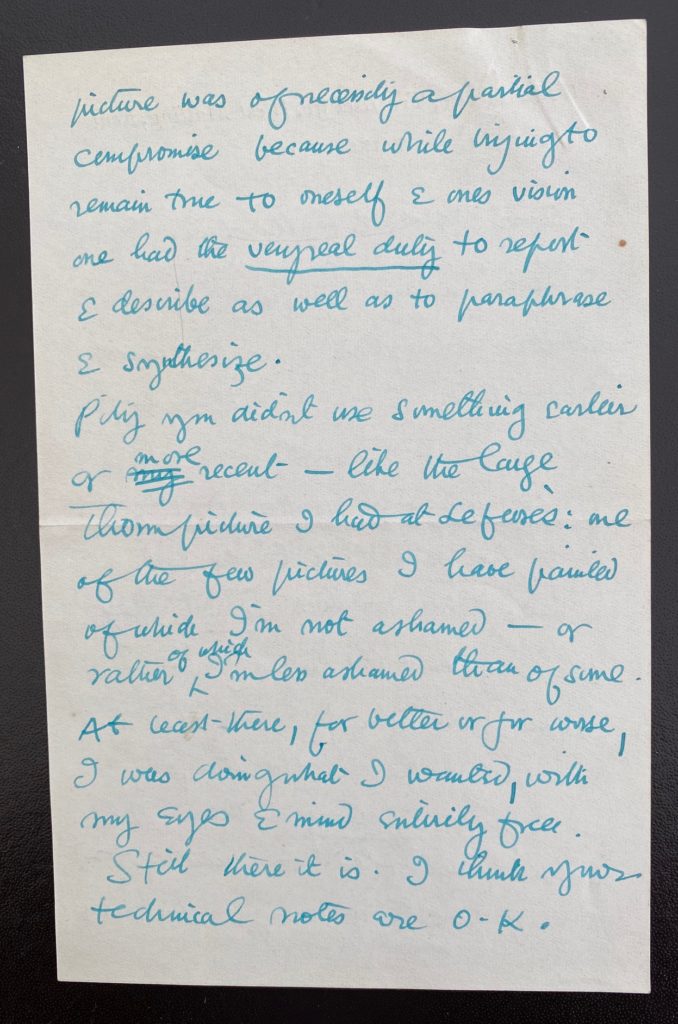 picture was of necessity a partial
compromise because while trying to
remain true to oneself & ones vision
one had the very real duty to report
& describe as well as to paraphrase
& synthesize.
Pity you didn't use something earlier
or more recent – like the large
Thorn picture I had at Lefevre's: one
of the few pictures I have painted
of which I'm not ashamed – or
rather of which I'm less ashamed than of some.
At least there, for better or for worse,
I was doing what I wanted, with
my eyes & mind entirely free.
Still there it is. I think your
technical notes are O-K.